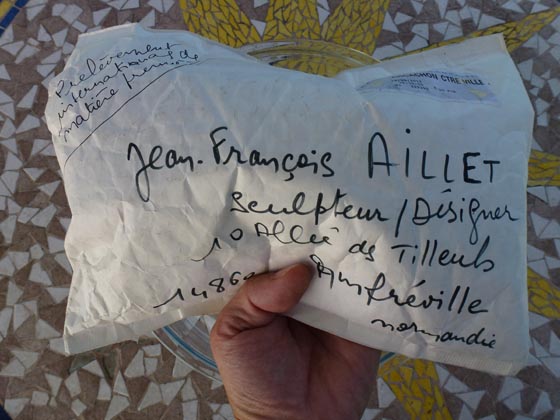 Prelèvement
international de
matière première
ACHON CTRE VILLE
Jean-François AILLET
Sculpteur/Désigner
10 Allée des Tilleuls
14860 Amfréville
normandie